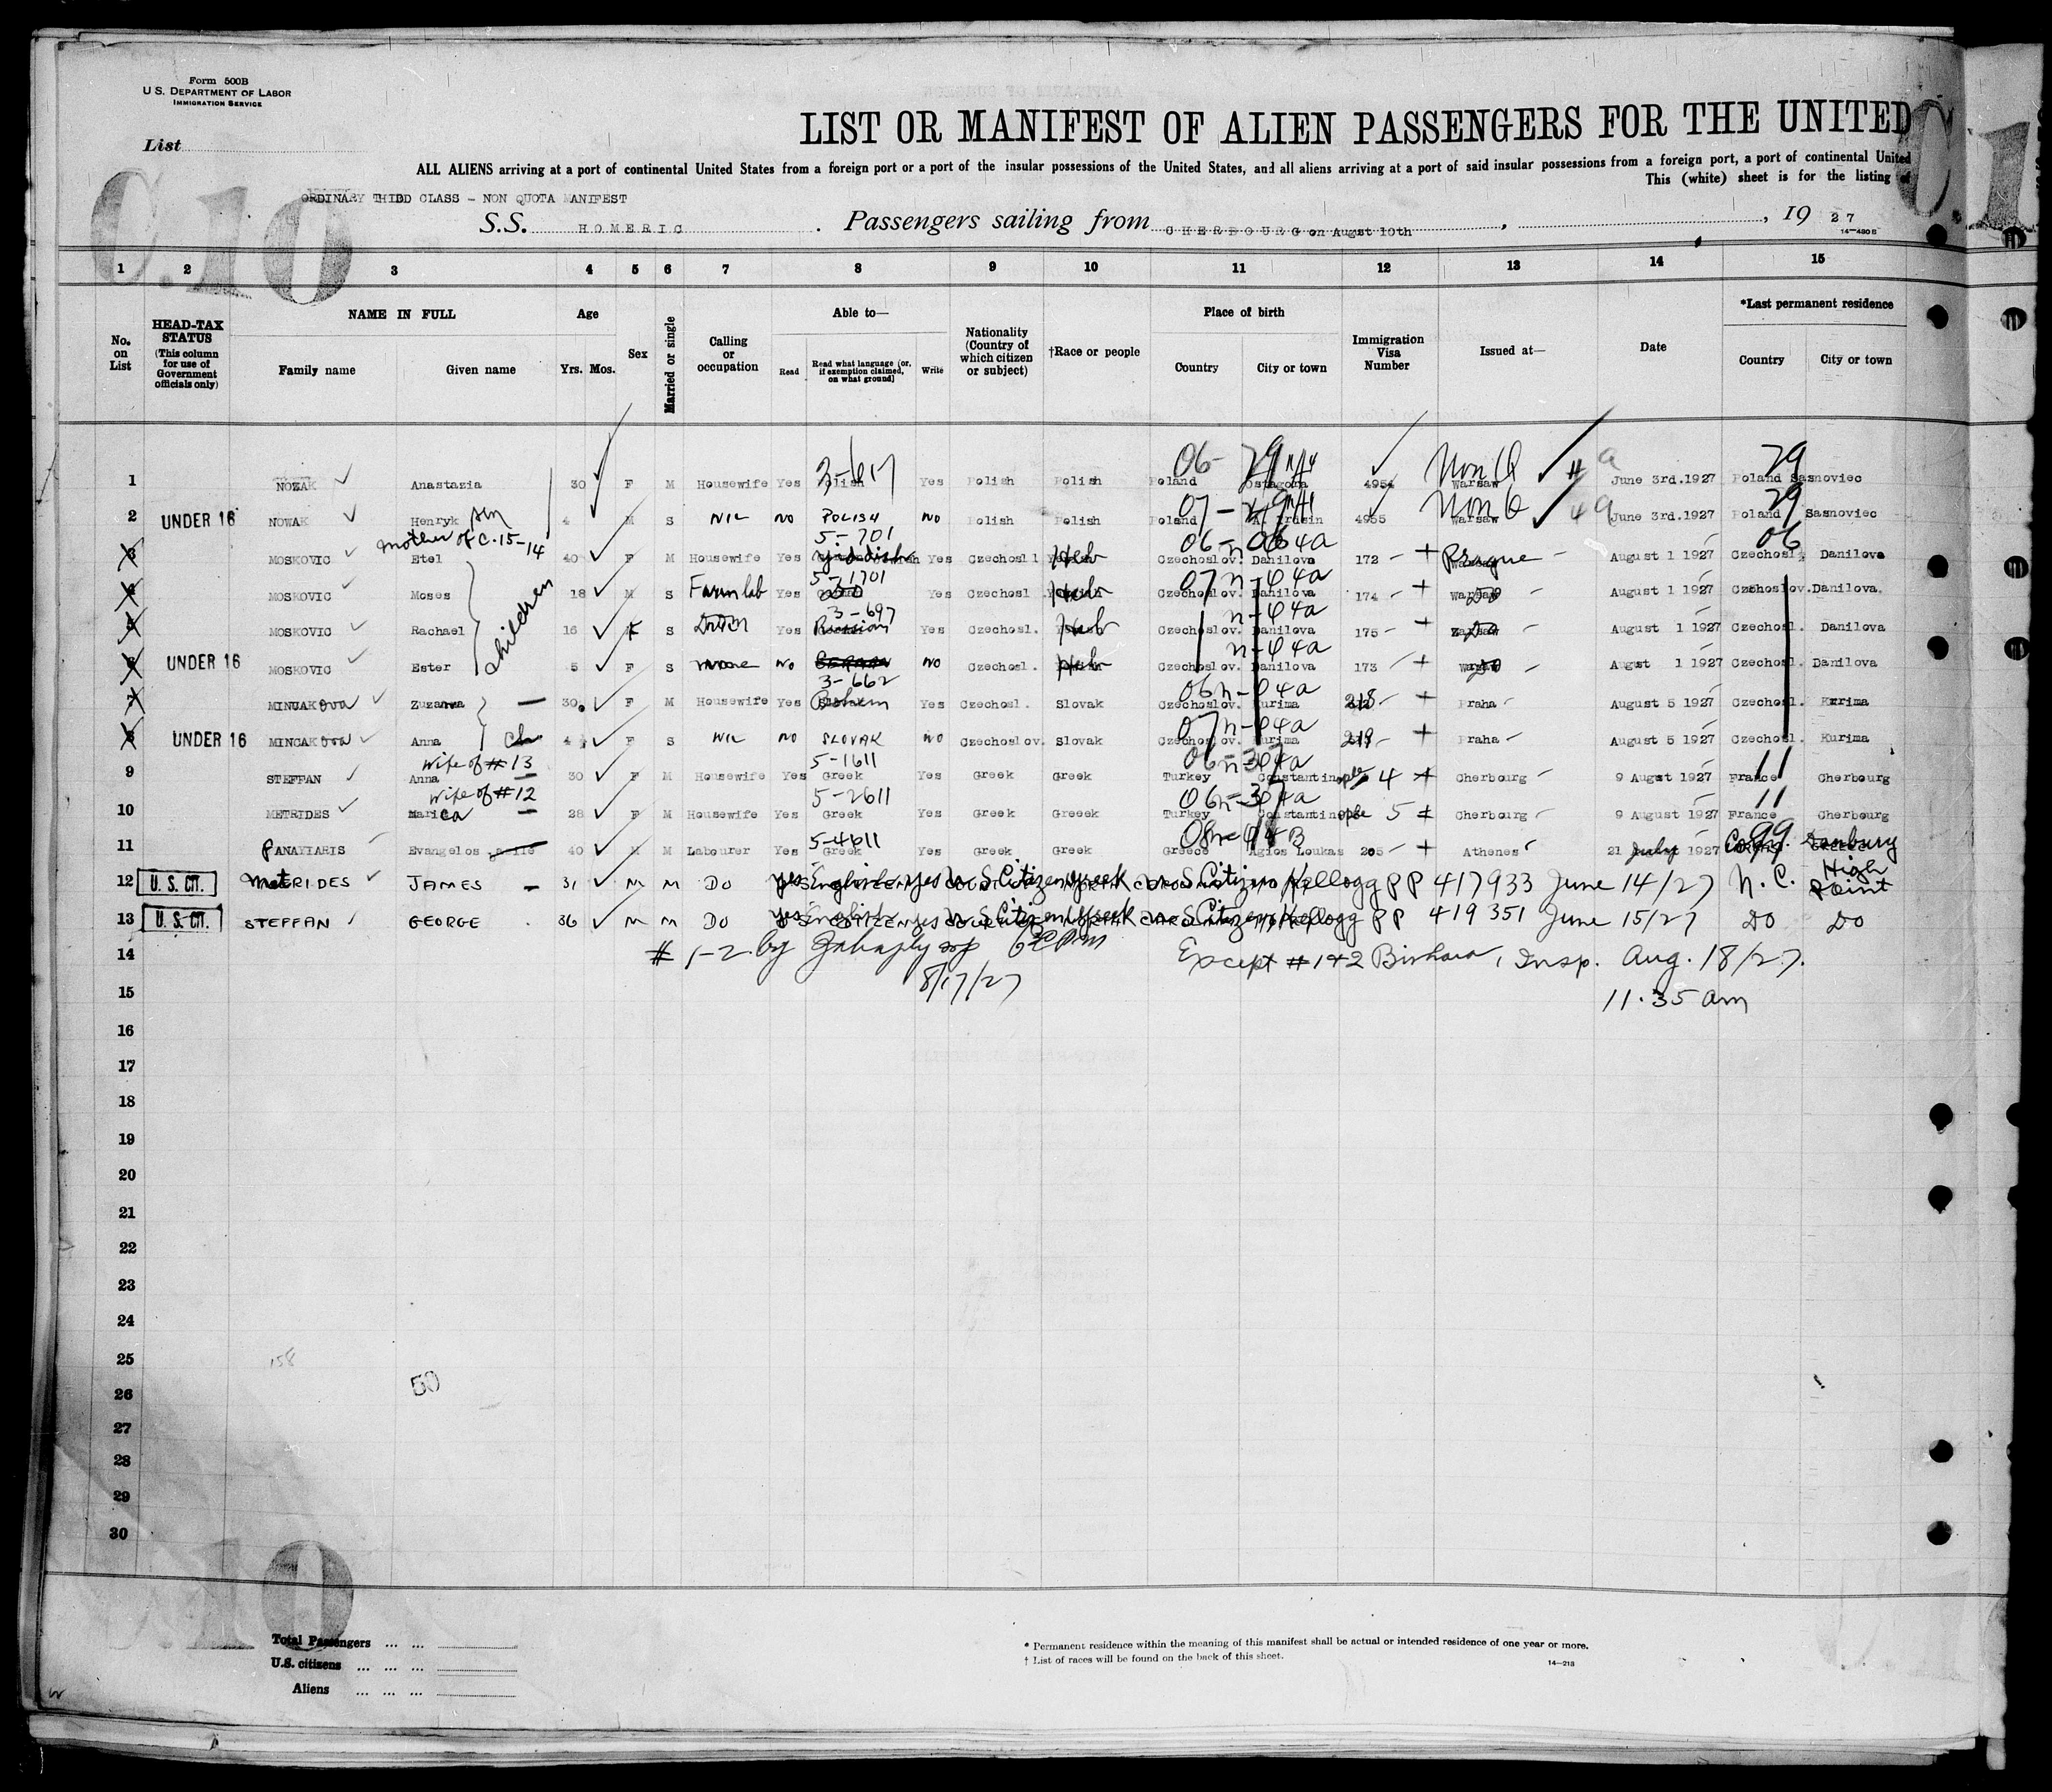 Form 500B
U.S. DEPARTMENT OF LABOR
IMMIGRATION SERVICE
List
LIST OR MANIFEST OF ALIEN PASSENGERS FOR THE UNITED
ALL ALIENS arriving at a port of continental United States from a foreign port or a port of the insular possessions of the United States, and all aliens arriving at a port of said insular possessions from a foreign port, a port of continental United
This (white) sheet is for the listing of
C.10
ORDINARY THIRD CLASS - NON QUOTA MANIFEST
S.S. HOMERIC. Passengers sailing from CHERBOURG on Augst 10th, 19 27
14-480 B
1 2 3 4 5 6 7 8 9 10 11 12 13 14 15
No. on List
HEAD-TAX STATUS (This column for use of Government officials only)
NAME IN FULL
Family name Given name
Age
Yrs. Mos.
Sex
Married or single
Calling or occupation
Able to—
Read
Read what language (or, if exemption claimed, on what ground)
Write
Nationality (Country of which citizen or subject)
†Race or people
Place of birth
Country City or town
Immigration Visa Number
Issued at—
Date
*Last permanent residence
Country City or town
1 NOZAK Anastazia 30 F M Housewife Yes Polish Yes Polish Polish Poland 4954 Warsaw June 3rd.1927 Poland Sasnoviec
2 UNDER 16 NOWAK Henryk son 4 M S NIL NO POLISH NO Polish Polish Poland 4955 Warsaw June 3rd.1927 Poland Sasnoviec
mother of C.15-14 5-701
3 MOSKOVIC Etel 40 F M Housewife Yes Yiddish Yes Czechosl Heb Czechoslov. Danilova 172 Prague August 1 1927 Czechosl. Danilova
4 MOSKOVIC Moses 18 M S Farm lab Yes Do Yes Czechosl Heb Czechoslov. Danilova 174 Do August 1 1927 Czechoslov. Danilova.
children
5 MOSKOVIC Rachael 16 F S Yes Russian Yes Czechosl. Heb Czechoslov. Danilova 175 Do August 1 1927 Czechosl. Danilova
6 UNDER 16 MOSKOVIC Ester 5 F S none NO NO Czechosl. Heb Czechoslov. Danilova 173 Do August 1 1927 Czechosl. Danilova
3-662
7 MINCAKOVA Zuzanna 30 F M Housewife Yes Yes Czechosl. Slovak Czechoslov. Kurima 218 Praha August 5 1927 Czechosl. Kurima
8 UNDER 16 MINCAKOVA Anna ch 4 F S NIL NO SLOVAK NO Czechoslov. Slovak Czechoslov. Kurima 219 Praha August 5 1927 Czechosl. Kurima
Wife of #13 5-1611
9 STEFFAN Anna 30 F M Housewife Yes Greek Yes Greek Greek Turkey Constantinople 4 Cherbourg 9 August 1927 France Cherbourg
Wife of #12 5-2611
10 METRIDES Marica 28 F M Housewife Yes Greek Yes Greek Greeek Turkey Constantinople 5 Cherbourg 9 August 1927 France Cherbourg
5-4611
11 PANAYIARIS Evangelos 40 M M Labourer Yes Greek Yes Greek Greek Greece Agios Loukas 205 Athenes 21 July 1927 Conn. Danbury
12 U.S. CIT. METRIDES JAMES 31 M M Do yes English yes U S Citizen Greek U S Citizen Kellogg PP 417933 June 14/27 N.C. High Point
13 U.S. CIT. STEFFAN GEORGE 36 M M Do yes English yes U S Citizen Greek U S Citizen Kellogg PP 419351 June 15/27 Do Do
14 # 1-2 by Except #1+2 Insp. Aug. 18/27.
8/17/27
15 11.35 am
16
17
18
19
20
21
22
23
24
25 158
26 50
27
28
29
30
Total Passengers ... ...
U.S. citizens ... ... ...
Aliens ... ... ...
* Permanent residence within the meaning of this manifest shall be actual or intended residence of one year or more.
† List of races will be found on the back of this sheet.
14-213